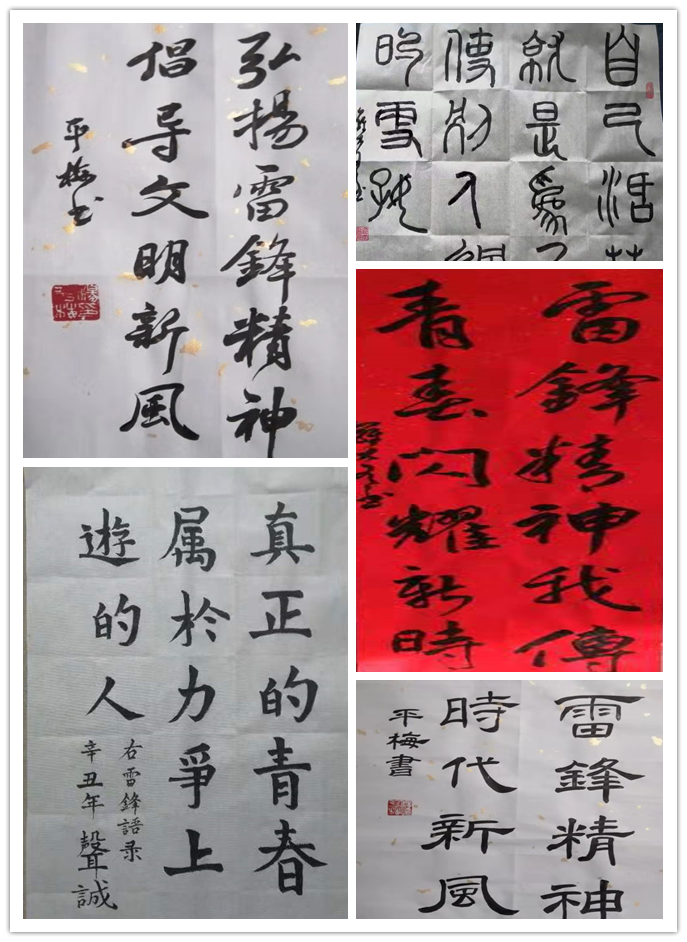 弘揚雷鋒精神
倡导文明新風
平梅书
自己活
就是為
使别人
雷鋒精神我傳
青春閃耀新時
真正的青春
属於力爭上
遊的人
右雷鋒語录
辛丑年聲誠
雷鋒精神
時代新風
平梅書